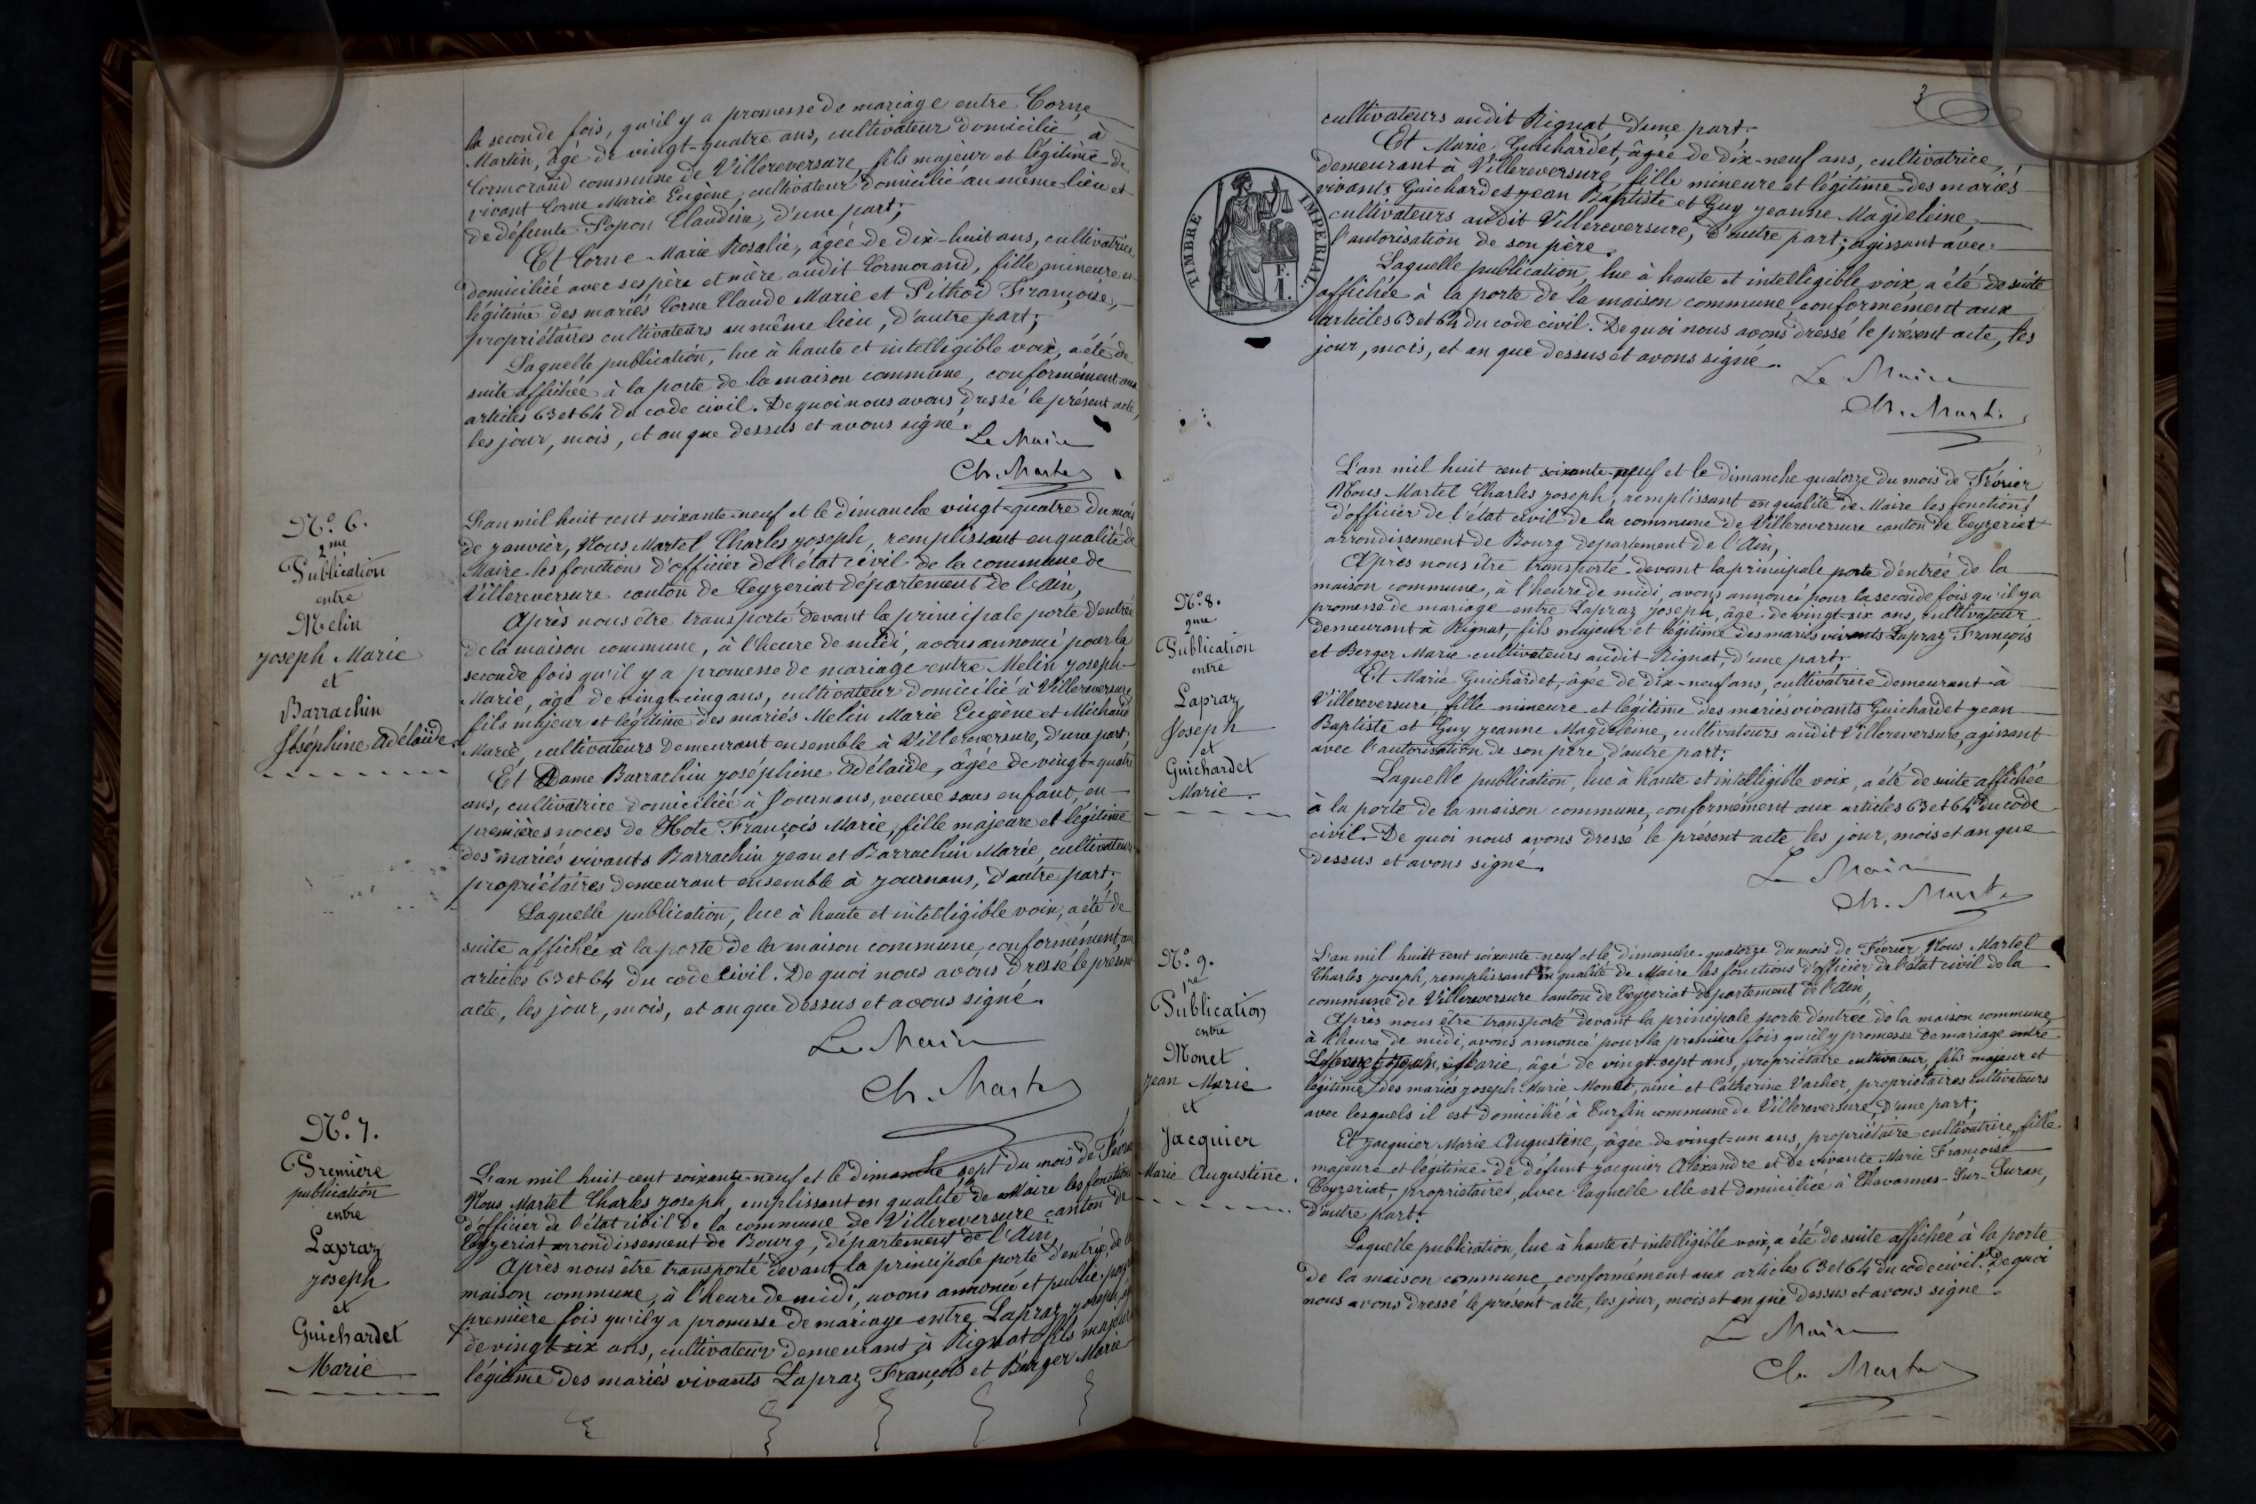 la seconde fois, qu'il y a promesse de mariage entre Corne
Martin, âgé de vingt-quatre ans, cultivateur domicilié à
Cormorand commune de Villereversure, fils majeur et légitime de
vivant Corne Marie Eugène, cultivateur domicilié au même lieu et
de défunte Popon Claudine, d'une part;
Et Corne Marie Rosalie, âgée de dix-huit ans, cultivatrice
domiciliée avec ses père et mère audit Cormorand, fille mineure et
légitime des mariés Corne Claude Marie et Pithod Françoise,
propriétaires cultivateurs au même lieu, d'autre part;
Laquelle publication, lue à haute et intelligible voix, a été de
suite affichée à la porte de la maison commune, conformément aux
articles 63 et 64 du code civil. De quoi nous avons dressé le présent acte,
les jour, mois, et an que dessus et avons signé.
Le Maire
Ch. Martel
N° 6.
2me
Publication
entre
Melin
Joseph Marie
et
Barrachin
Joséphine Adélaïde
L'an mil huit cent soixante-neuf et le dimanche vingt-quatre du mois
de Janvier, Nous Martel Charles Joseph, remplissant en qualité de
Maire les fonctions d'officier de l'état civil de la commune de
Villereversure canton de Ceyzeriat département de l'Ain,
Après nous être transporté devant la principale porte d'entrée
de la maison commune, à l'heure de midi, avons annoncé pour la
seconde fois qu'il y a promesse de mariage entre Melin Joseph
Marie, âgé de vingt-cinq ans, cultivateur domicilié à Villereversure
fils majeur et légitime des mariés Melin Marie Eugène et Michaud
Marie, cultivateurs demeurant ensemble à Villereversure, d'une part,
Et Dame Barrachin Joséphine Adélaïde, âgée de vingt-quatre
ans, cultivatrice domiciliée à Journans, veuve sans enfant, en
premières noces de Hote François Marie, fille majeure et légitime
des mariés vivants Barrachin Jean et Barrachin Marie, cultivateurs
propriétaires demeurant ensemble à Journans, d'autre part,
Laquelle publication, lue à haute et intelligible voix, a été de
suite affichée à la porte de la maison commune, conformément aux
articles 63 et 64 du code civil. De quoi nous avons dressé le présent
acte, les jour, mois, et an que dessus et avons signé.
Le Maire
Ch. Martel
N° 7.
Première
publication
entre
Lapraz
Joseph
et
Guichardet
Marie
L'an mil huit cent soixante-neuf et le dimanche sept du mois de Février
Nous Martel Charles Joseph, emplissant en qualité de Maire les fonctions
d'officier de l'état civil de la commune de Villereversure canton de
Ceyzeriat arrondissement de Bourg, département de l'Ain,
Après nous être transporté devant la principale porte d'entrée de la
maison commune, à l'heure de midi, avons annoncé et publié pour
première fois qu'il y a promesse de mariage entre Lapraz Joseph, âgé
de vingt-six ans, cultivateur demeurant à Rignat, fils majeur
légitime des mariés vivants Lapraz François et Berger Marie
3
cultivateurs audit Rignat d'une part.
Et Marie Guichardet, âgée de dix-neuf ans, cultivatrice,
demeurant à Villereversure, fille mineure et légitime des mariés
vivants Guichardet Jean Baptiste et Guy Jeanne Magdeleine,
cultivateurs audit Villereversure, d'autre part; agissant avec
l'autorisation de son père.
Laquelle publication, lue à haute et intelligible voix, a été de suite
affichée à la porte de la maison commune, conformément aux
articles 63 et 64 du code civil. De quoi nous avons dressé le présent acte, les
jour, mois, et an que dessus et avons signé.
TIMBRE IMPERIAL.
Le Maire
Ch. Martel
N° 8.
2me
Publication
entre
Lapraz
Joseph
et
Guichardet
Marie.
L'an mil huit cent soixante-neuf et le dimanche quatorze du mois de Février
Nous Martel Charles Joseph, remplissant en qualité de Maire les fonctions
d'officier de l'état civil de la commune de Villereversure canton de Ceyzeriat
arrondissement de Bourg département de l'Ain,
Après nous être transporté devant la principale porte d'entrée de la
maison commune, à l'heure de midi, avons annoncé pour la seconde fois qu'il y a
promesse de mariage entre Lapraz Joseph, âgé de vingt-six ans, cultivateur
demeurant à Rignat, fils majeur et légitime des mariés vivants Lapraz François
et Berger Marie cultivateurs audit Rignat, d'une part;
Et Marie Guichardet, âgée de dix-neuf ans, cultivatrice demeurant à
Villereversure, fille mineure et légitime des mariés vivants Guichardet Jean
Baptiste et Guy Jeanne Magdeleine, cultivateurs audit Villereversure, agissant
avec l'autorisation de son père, d'autre part;
Laquelle publication, lue à haute et intelligible voix, a été de suite affichée
à la porte de la maison commune, conformément aux articles 63 et 64 du code
civil. De quoi nous avons dressé le présent acte, les jour, mois et an que
dessus et avons signé.
Le Maire
Ch. Martel
N° 9.
1re
Publication
entre
Monet
Jean Marie
et
Jacquier
Marie Augustine.
L'an mil huitt cent soixante-neuf et le dimanche quatorze du mois de Février, Nous Martel
Charles Joseph, remplissant en qualité de Maire les fonctions d'officier de l'état civil de la
commune de Villereversure canton de Ceyzeriat département de l'Ain,
Après nous être transporté devant la principale porte d'entrée de la maison commune,
à l'heure de midi, avons annoncé pour la première fois qu'il y promesse de mariage entre
Marie, âgé de vingt-sept ans, propriétaire cultivateur, fils majeur et
légitime des mariés Joseph Marie Monet, ainé et Catherine Vacher, propriétaires cultivateurs
avec lesquels il est domicilié à Turfin commune de Villereversure, d'une part;
Et Jacquier Marie Augustine, âgée de vingt-un ans, propriétaire cultivatrice, fille
majeure et légitime de défunt Jacquier Alexandre et de vivante Marie Françoise
Ceyzeriat, propriétaires, avec laquelle elle est domiciliée à Chavannes-Sur-Suran,
d'autre part;
Laquelle publication, lue à haute et intelligible voix, a été de suite affichée à la porte
de la maison commune, conformément aux articles 63 et 64 du code civil. De quoi
nous avons dressé le présent acte, les jour, mois et an que dessus et avons signé.
Le Maire
Ch. Martel